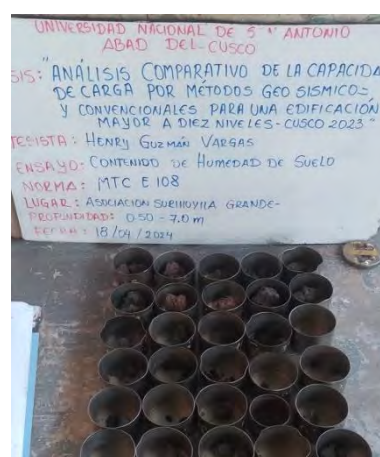 UNIVERSIDAD NACIONAL DE S ANTONIO
ABAD DEL CUSCO
SIS: "ANÁLISIS COMPARATIVO DE LA CAPACIDA
DE CARGA POR MÉTODOS GEO SISMICOS
Y CONVENCIONALES PARA UNA EDIFICACIÓN
MAYOR A DIEZ NIVELES - CUSCO 2023"
TESISTA: HENRY GUZMAN VARGAS
ENSAYO: CONTENIDO DE HUMEDAD DE SUELO
NORMA: MTC E 108
LUGAR: ASOCIACION GRANDE-
PROFUNDIDAD: 0.50 - 7.0 m
FECHA: 18/04/2024